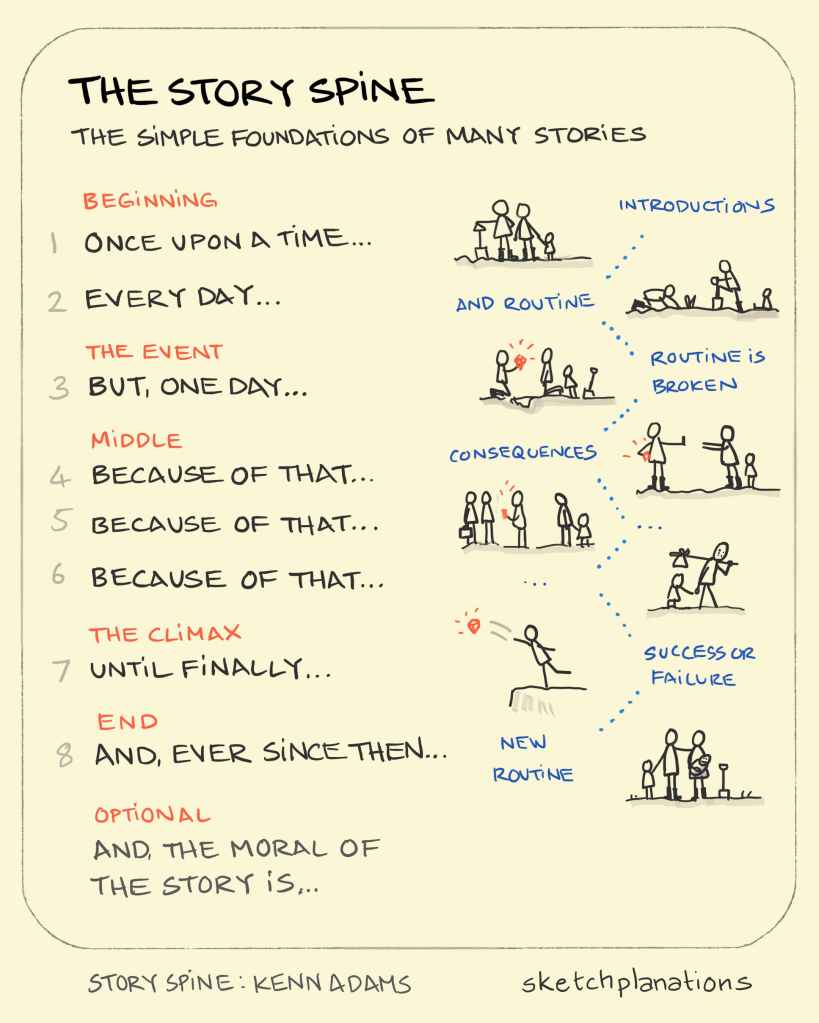 THE STORY SPINE
THE SIMPLE FOUNDATIONS OF MANY STORIES
BEGINNING
1 ONCE UPON A TIME...
2 EVERY DAY...
THE EVENT
3 BUT, ONE DAY...
MIDDLE
4 BECAUSE OF THAT...
5 BECAUSE OF THAT...
6 BECAUSE OF THAT...
THE CLIMAX
7 UNTIL FINALLY...
END
8 AND, EVER SINCE THEN...
OPTIONAL
AND, THE MORAL OF
THE STORY IS...
INTRODUCTIONS
AND ROUTINE
ROUTINE IS
BROKEN
CONSEQUENCES
...
...
SUCCESS OR
FAILURE
NEW
ROUTINE
STORY SPINE: KENN ADAMS
sketchplanations